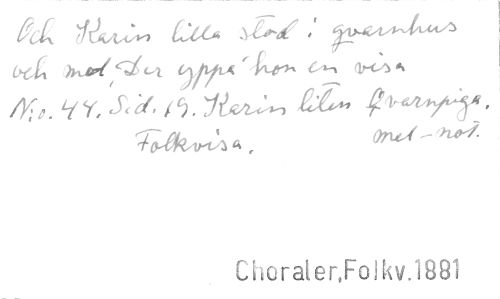 Och Karin lilla stod i qvarnhus
och mol, Der yppa' hon en visa
N:o. 44. Sid. 19. Karin liten Qvarnpiga.
Folkvisa. mel-not.
Choraler,Folkv.1881